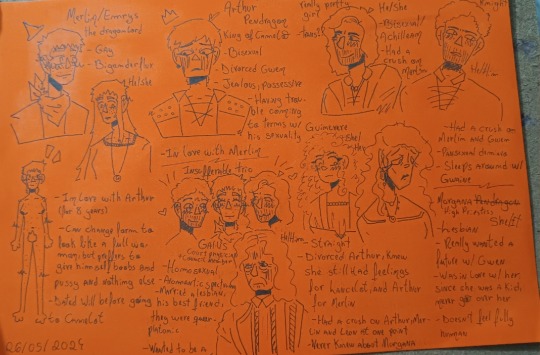 Merlin/Emrys
the dragonlord
- Gay
- Bigenderflux
He/She
Arthur
Pendragon
King of Camelot
- Bisexual
- Divorced Gwen
- Jealous, possessive
- Having trou-
ble coming
to terms w/
his sexuality
- In love with Merlin
really pretty
girl
He/She
- Bisexual/
Achillean
- Had a
crush on
Merlin
Knight
He/Him
- Had a crush on
Merlin and Gwen
- Pansexual
- Sleeps around w/
Insufferable trio
Guinevere
She/
- Straight
- Divorced Arthur, knew
she still had feelings
for Lancelot, and Arthur
for Merlin
- Had a crush on Arthur, Mer-
lin and Leon at one point
- Never knew about Morgana
Morgana Pendragon
High Priestess
She/It
- Lesbian
- Really wanted a
future w/ Gwen
- Was in love w/ her
since she was a kid,
never got over her
- Doesn't feel fully
human
- In love with Arthur
(for 8 years)
- Can change form to
look like a full wo-
man, but prefers to
give himself boobs and
pussy and nothing else
- Dated Will before going
to Camelot
Gaius
Court physician
He/Him
- Homosexual
- Aromantic spectrum
- Married a lesbian,
his best friend,
they were queer-
platonic
- Wanted to be a
26/05/2024